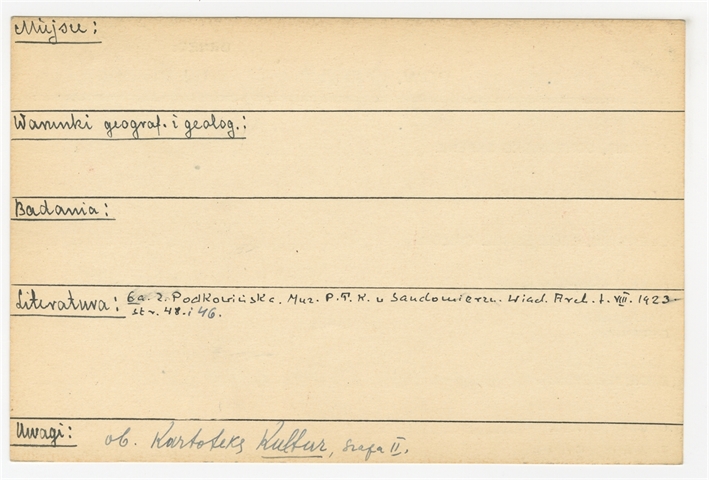 Miejsce:
Warunki geograf. i geolog.:
Badania:
Literatura: 6a. Z. Podkowińska. Muz. P.T.K. w Sandomierzu. Wiad. Arch. t. VIII. 1923
str. 48. i 46.
Uwagi: ob. Kartotekę Kultur, szafa II.